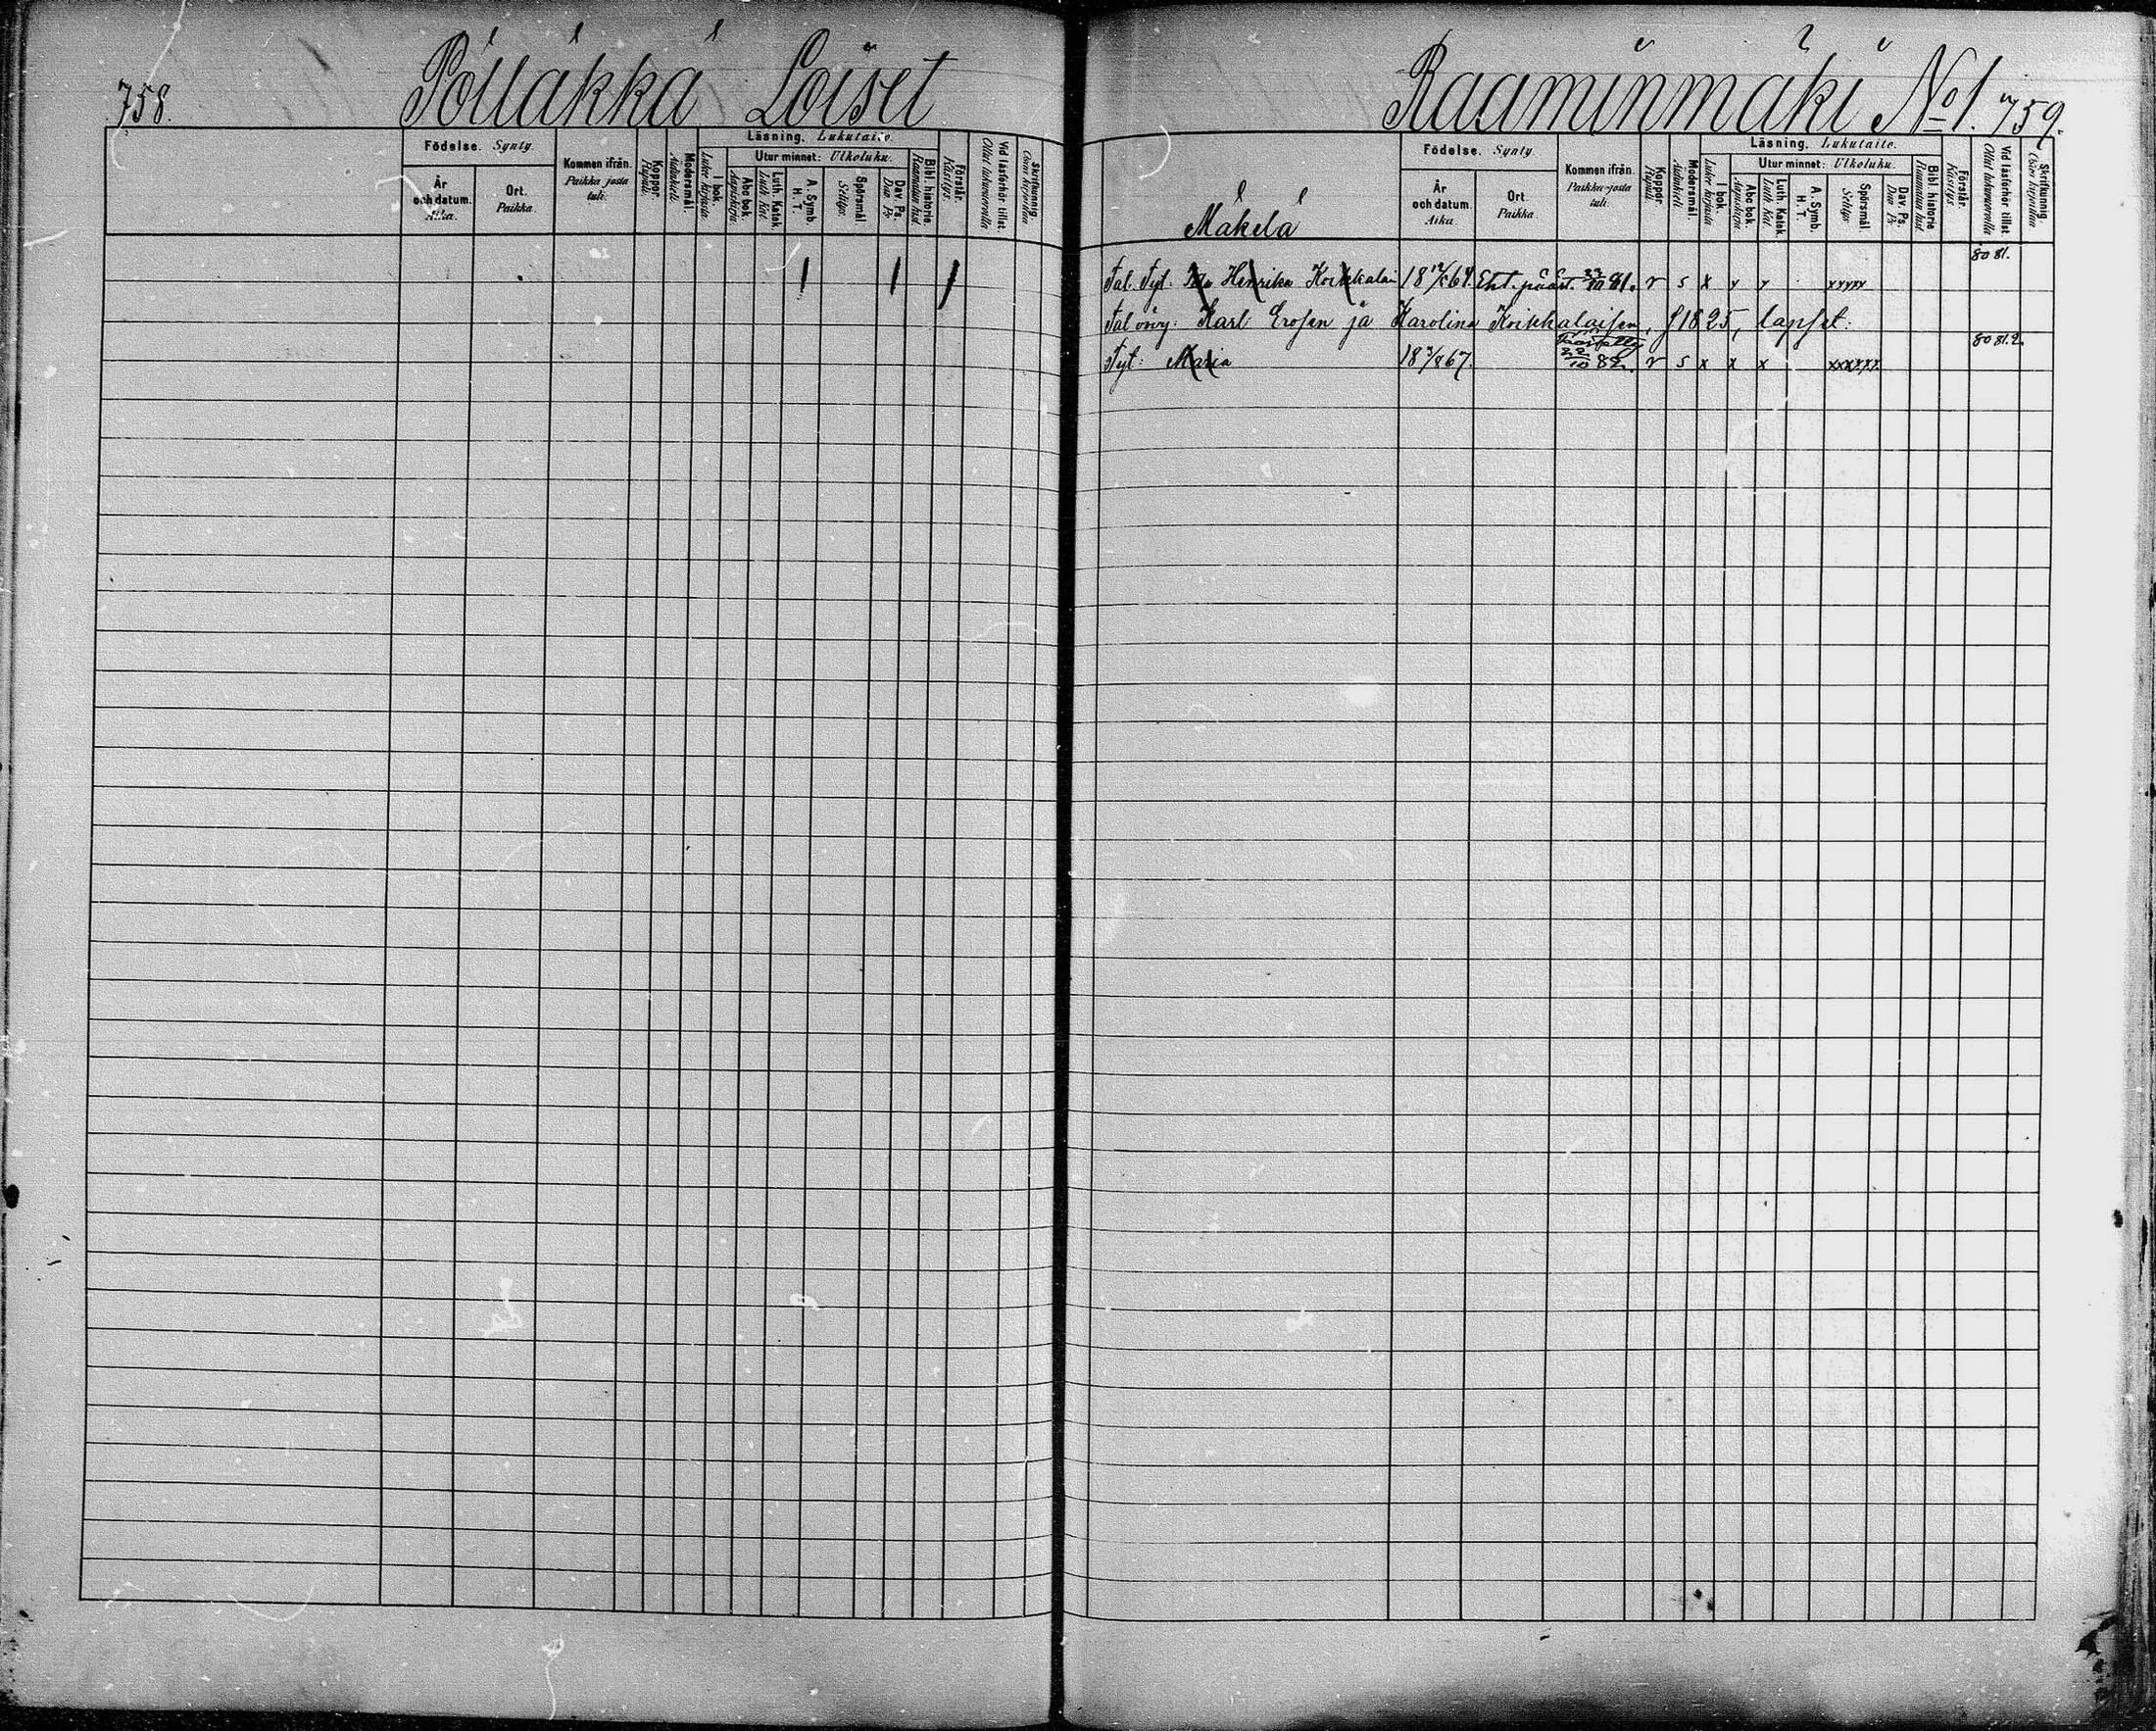 758.
Pölläkkä Loiset
Födelse. Synty.
År och datum. Aika.
Ort. Paikka.
Kommen ifrån. Paikka josta tuli.
Koppor. Rupuli.
Modersmål. Äidinkieli.
Läsning. Lukutaito.
I bok. Lukee kirjasta.
Utur minnet: Ulkoluku.
Abc bok. Aapiskirja.
Luth. Katek. Luth. Kat.
A. Symb. H. T.
Spörsmål. Selitys.
Dav. Ps. Dav. Ps.
Bibl. historie. Raamatun hist.
Förstår. Käsitys.
Vid läsförhör tillst. Ollut lukuvuorolla
Raaminmäki No 1. 759.
Mäkelä
Födelse. Synty.
År och datum. Aika
Ort. Paikka.
Kommen ifrån. Paikka josta tuli.
Koppor. Rupuli.
Modersmål. Äidinkieli
Läsning. Lukutaito.
I bok. Lukee kirjasta
Utur minnet: Ulkoluku.
Abc bok. Aapiskirja.
Luth. Katek. Luth. Kat.
A. Symb. H. T.
Spörsmål Selitys.
Dav. Ps. Dav. Ps
Bibl. historie Raamatun hist
Förstår. Käsitys.
Vid läsförhör tillst Ollut lukuvuorolla
Skriftunnig.
80 81.
Tal. Tyt. Henrika 18 64. Eht. pääst. 81. r s x y y xyyyy
Tal. Karl Erosen ja Karolina Koikkalaisen, f 1825, lapset:
80 81.2.
Tyt: Maria 18 67. 82. r s x x x xxxxxx